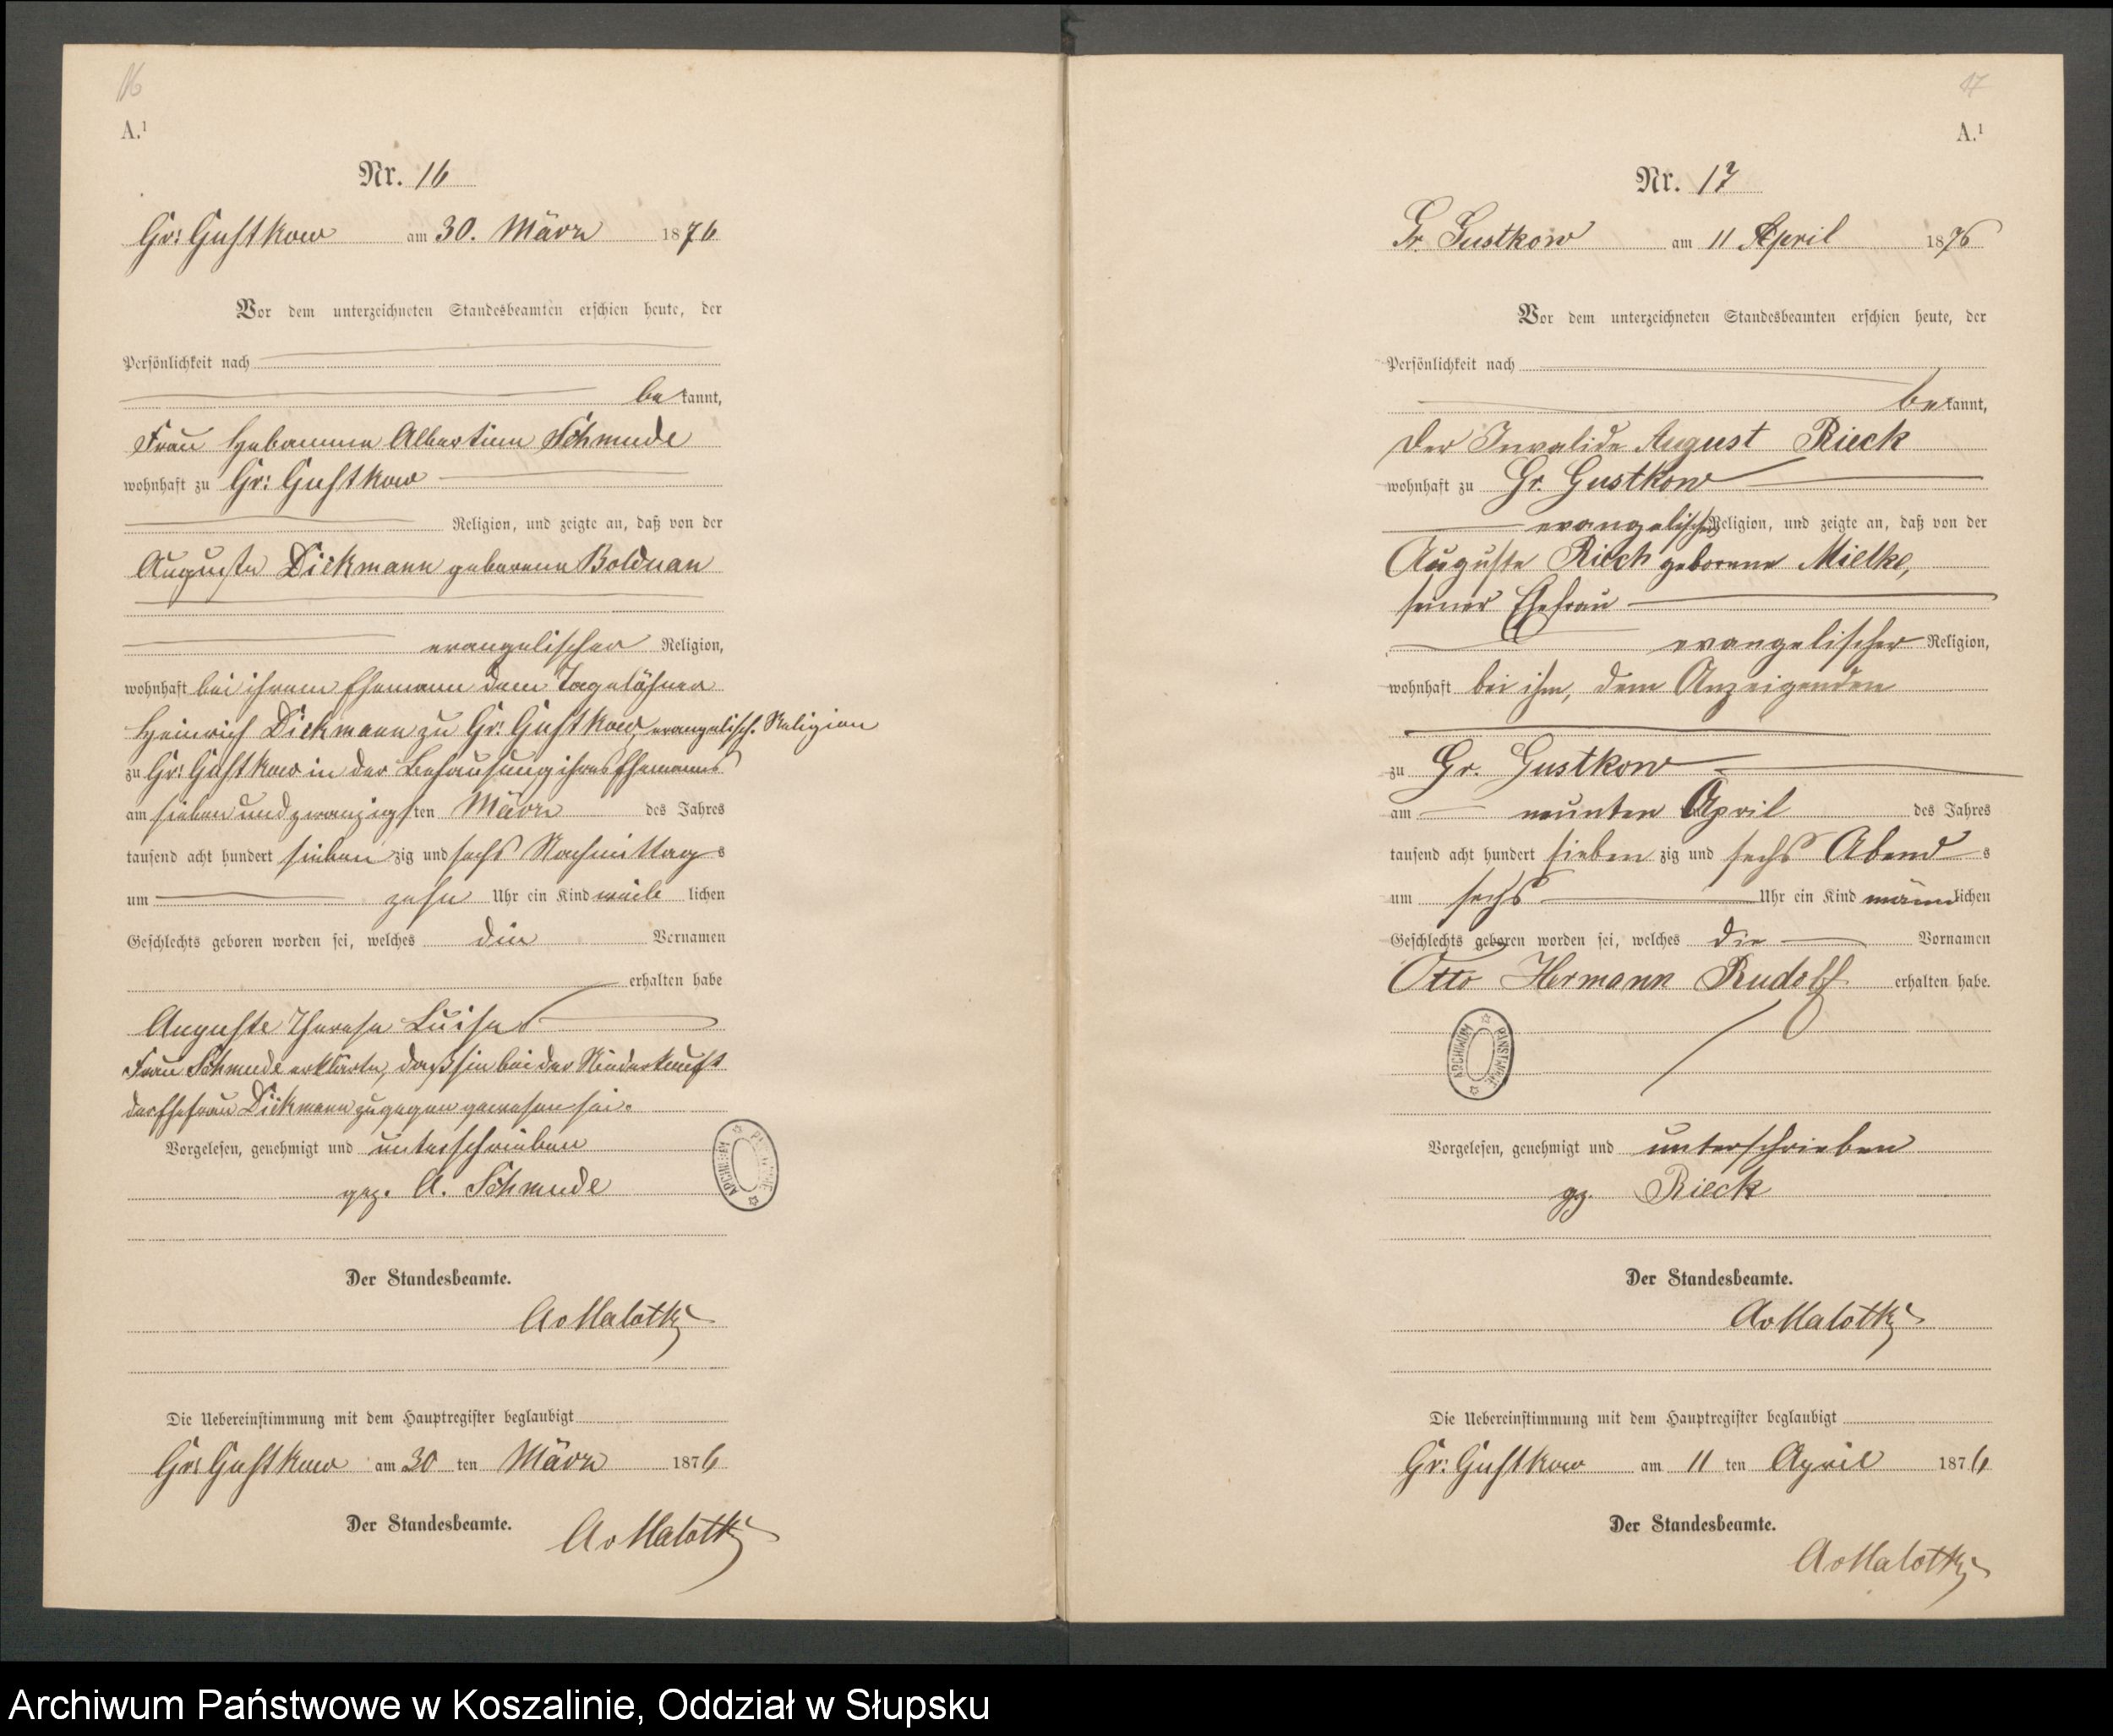 16
A.¹
Nr. 16
Gr: Gustkow am 30. März 1876
Vor dem unterzeichneten Standesbeamten erschien heute, der
Persönlichkeit nach
bekannt,
Frau Hebamme Albertine Schmude
wohnhaft zu Gr: Gustkow
Religion, und zeigte an, daß von der
Auguste Dickmann geborene Bolduan
evangelischer Religion,
wohnhaft bei ihrem Ehemann dem Tagelöhner
Heinrich Dickmann zu Gr: Gustkow, evangelisch. Religion
zu Gr: Gustkow in der Behausung ihres Ehemanns
am sieben und zwanzigsten März des Jahres
tausend acht hundert siebenzig und sechs Nachmittags
um zehn Uhr ein Kind weiblichen
Geschlechts geboren worden sei, welches die Vornamen
erhalten habe
Auguste Therese Luise
Frau Schmude erklärte, daß sie bei der Niederkunft
der Ehefrau Dickmann zugegen gewesen sei.
Vorgelesen, genehmigt und unterschrieben
gez. A. Schmude
Der Standesbeamte.
AvMalotky
Die Uebereinstimmung mit dem Hauptregister beglaubigt
Gr: Gustkow am 30 ten März 1876
Der Standesbeamte.
AvMalotky
17
A.¹
Nr. 17
Gr. Gustkow am 11 April 1876
Vor dem unterzeichneten Standesbeamten erschien heute, der
Persönlichkeit nach
bekannt,
der Invalide August Rieck
wohnhaft zu Gr. Gustkow
evangelischer Religion, und zeigte an, daß von der
Auguste Rieck geborene Mielke,
seiner Ehefrau
evangelischer Religion,
wohnhaft bei ihm, dem Anzeigenden
zu Gr. Gustkow
am neunten April des Jahres
tausend acht hundert siebenzig und sechs Abends
um sechs Uhr ein Kind männlichen
Geschlechts geboren worden sei, welches die Vornamen
Otto Hermann Rudolf erhalten habe.
ARCHIWUM PAŃSTWOWE
Vorgelesen, genehmigt und unterschrieben
gz. Rieck
Der Standesbeamte.
AvMalotky
Die Uebereinstimmung mit dem Hauptregister beglaubigt
Gr: Gustkow am 11 ten April 1876
Der Standesbeamte.
AvMalotky
Archiwum Państwowe w Koszalinie, Oddział w Słupsku